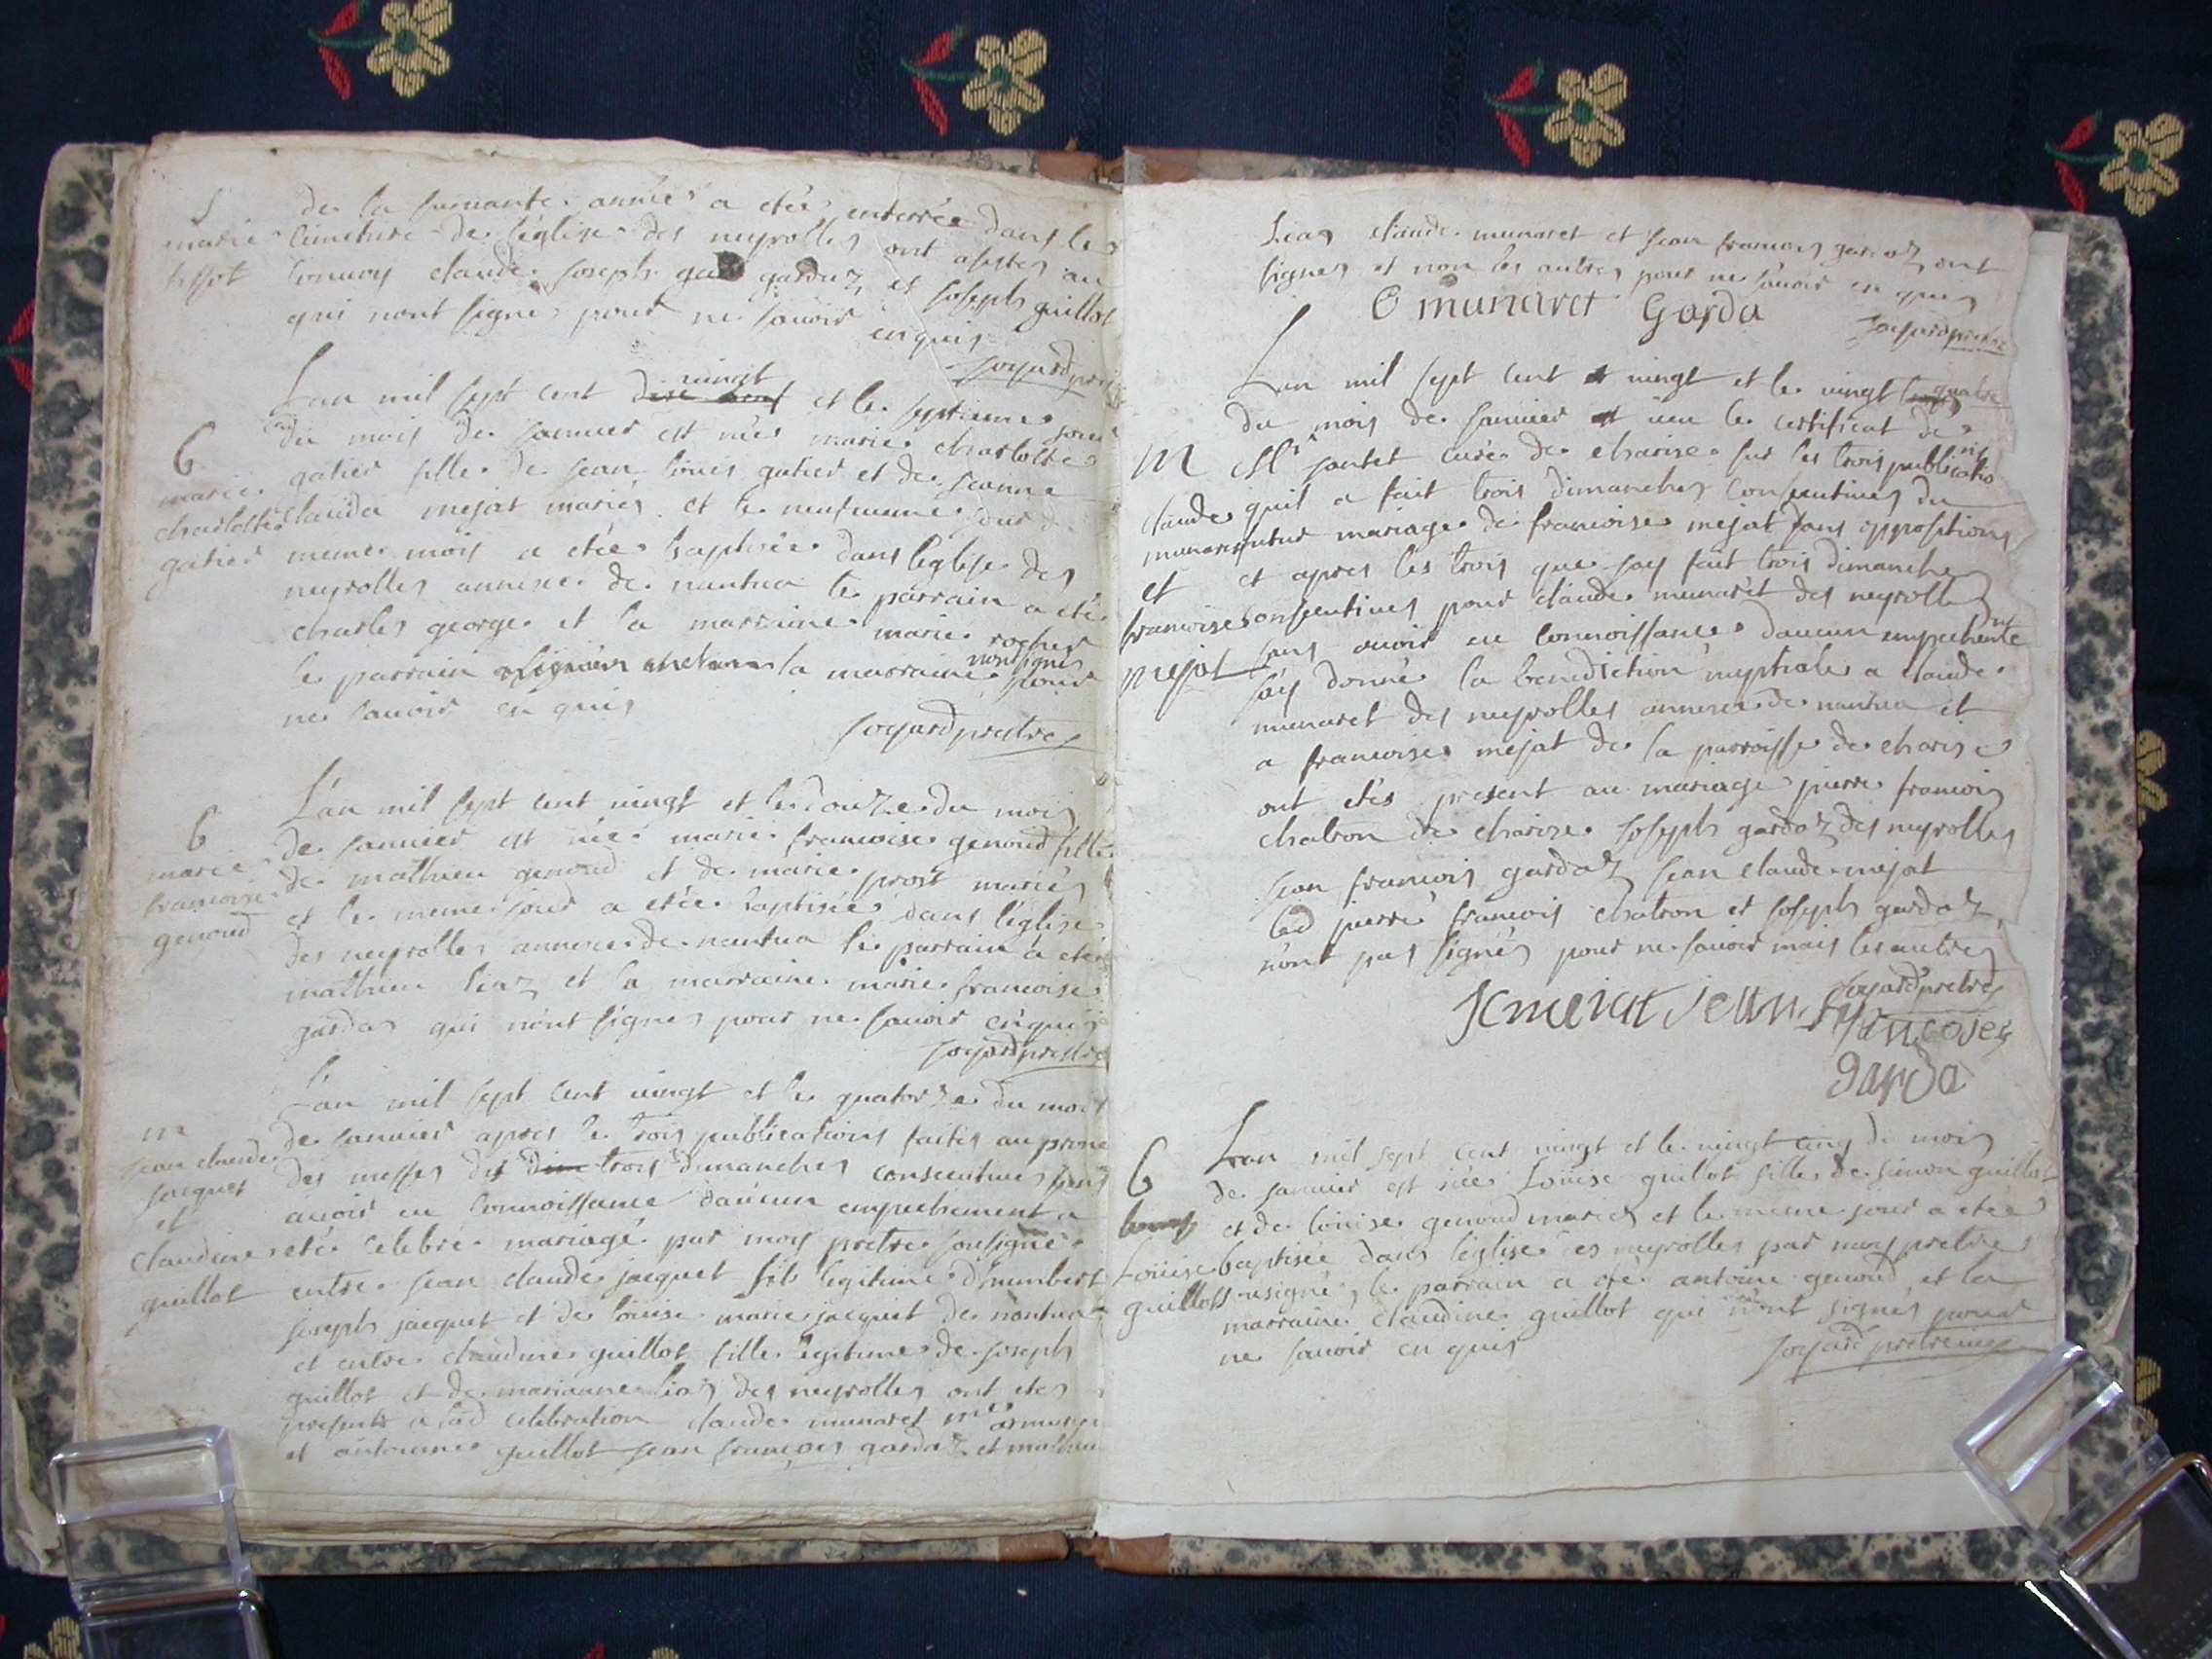 S
marie
tissot
de la suivante année a etée enterrée dans le
cimetiere de l'eglise des neyrolles ont assistes au
convoy claude joseph gardaz et joseph guillot
qui nont signe pour ne savoir enquis
joyard
Lan mil sept cent vingt et le septieme jour
B
marie
charlotte
gatier
du mois de janvier est née marie charlotte
gatier fille de jean louis gatier et de jeanne
claudа mejat mariés et le neufvieme jour du
meme mois a etée baptisée dans leglise des
neyrolles annexe de nantua le parrain a eté
charles george et la marraine marie rochet
le parrain la marraine non signés pour
ne savoir enquis
joyard prestre
B
marie
francoise
genoud
L'an mil sept cent vingt et le douze du mois
de janvier est née marie francoise genoud fille
de mathieu genoud et de marie prost mariés
et le meme jour a etée baptisée dans l'église
des neyrolles annexe de nantua le parrain a eté
mathieu liaz et la marraine marie francoise
gardas qui n'ont signes pour ne savoir enquis
joyard prestre
m
jean claude
jacquet
et
claudine
guillot
L'an mil sept cent vingt et le quatorze du mois
de janvier apres le trois publications faites au prone
des messes des trois dimanches consecutives sans
avoir eu connoissance daucun empechement a
eté celebré mariage par moy pretre sousigné
entre jean claude jacquet fils legitime d'humbert
joseph jacquet et de louise marie jacquet de nantua
et entre claudine guillot fille legitime de joseph
guillot et de marianne liaz des neyrolles ont etes
presents a lad celebration claude munaret
et antoinne guillot jean françois gardaz et mathieu
Liaz claude munaret et jean francois gardaz ont
signes et non les autres pour ne savoir enquis
C munaret Garda
joyard prestre
Lan mil sept cent vingt et le vingt quatre
M
claude
munaret
et
francoise
mejat
du mois de janvier veu le certificat de
Mr jantet curé de charixe sur les trois publications
quil a fait trois dimanches consecutives du
futur mariage de francoise mejat sans oppositions
et apres les trois que jay fait trois dimanche
consecutives pour claude munaret des neyrolles
sans avoir eu connoissance daucun empechemt
jay donné la benediction nuptiale a claude
munaret des neyrolles annexe de nantua et
a francoise mejat de la parroisse de charixe
ont etés present au mariage pierre francois
chatron de charixe joseph gardaz des neyrolles
jean francois gardaz jean claude mejat
led pierre francois chatron et joseph gardaz
n'ont pas signés pour ne savoir mais les autres
joyard pretre
jean francoies
garda
B
Louise
guillot
Lan mil sept cent vingt et le vingt cinq du mois
de janvier est née Louise guillot fille de simon guillot
et de louise genoud mariés et le meme jour a etée
baptisée dans léglise des neyrolles par moy pretre
sousigné, le parrain a eté antoine genoud et la
marraine claudine guillot qui n'ont signés pour
ne savoir enquis
joyard pretre